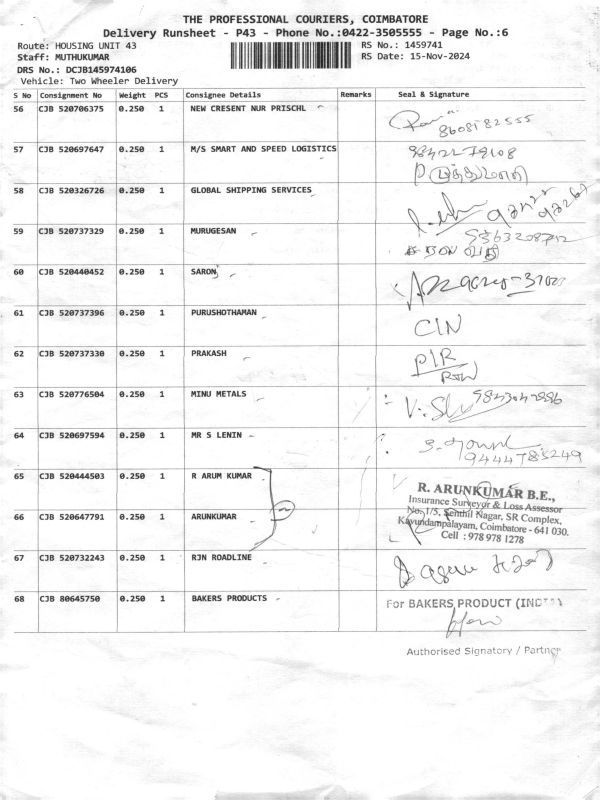 THE PROFESSIONAL COURIERS, COIMBATORE
Delivery Runsheet - P43 - Phone No.:0422-3505555 - Page No.:6
Route: HOUSING UNIT 43 RS No.: 1459741
Staff: MUTHUKUMAR RS Date: 15-Nov-2024
DRS No.: DCJB145974106
Vehicle: Two Wheeler Delivery
S No Consignment No Weight PCS Consignee Details Remarks Seal & Signature
56 CJB 520706375 0.250 1 NEW CRESENT NUR PRISCHL
8608182555
57 CJB 520697647 0.250 1 M/S SMART AND SPEED LOGISTICS
58 CJB 520326726 0.250 1 GLOBAL SHIPPING SERVICES
59 CJB 520737329 0.250 1 MURUGESAN
60 CJB 520440452 0.250 1 SARON
61 CJB 520737396 0.250 1 PURUSHOTHAMAN
CIN
62 CJB 520737330 0.250 1 PRAKASH
PIR
63 CJB 520776504 0.250 1 MINU METALS
64 CJB 520697594 0.250 1 MR S LENIN
9444785249
65 CJB 520444503 0.250 1 R ARUM KUMAR
R. ARUNKUMAR B.E.,
Insurance Surveyor & Loss Assessor
No. 1/5, Senthil Nagar, SR Complex,
66 CJB 520647791 0.250 1 ARUNKUMAR
Kavundampalayam, Coimbatore - 641 030.
Cell : 978 978 1278
67 CJB 520732243 0.250 1 RJN ROADLINE
68 CJB 80645750 0.250 1 BAKERS PRODUCTS
For BAKERS PRODUCT (INDIA)
Authorised Signatory / Partner